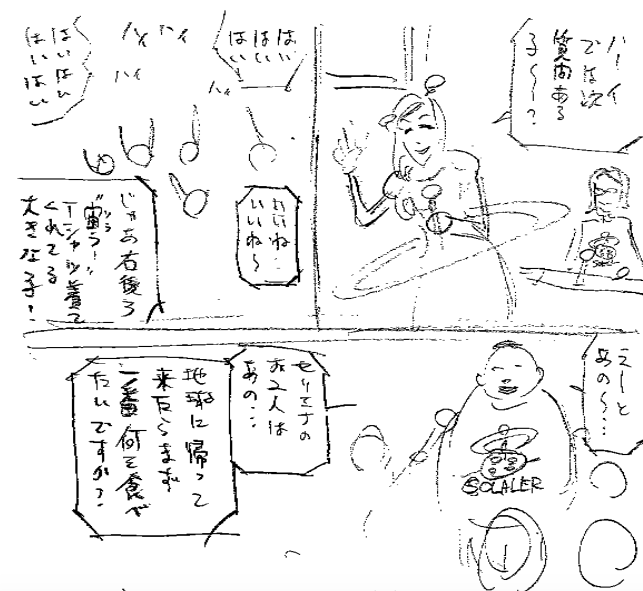 ハーイ
では次
質問ある
子〜〜?
はい
はい
はい
ハイ
ハイ
ハイ
ハイ
はいはい
はいはい
はい
いいね〜
じゃあ右後ろ
"宙ラー"
ソラ
Tシャツ着て
くれてる
大きな子!
えーと
あの〜…
SOLALER
お2人は
あの…
地球に帰って
来たらまず
一番何を食べ
たいですか?